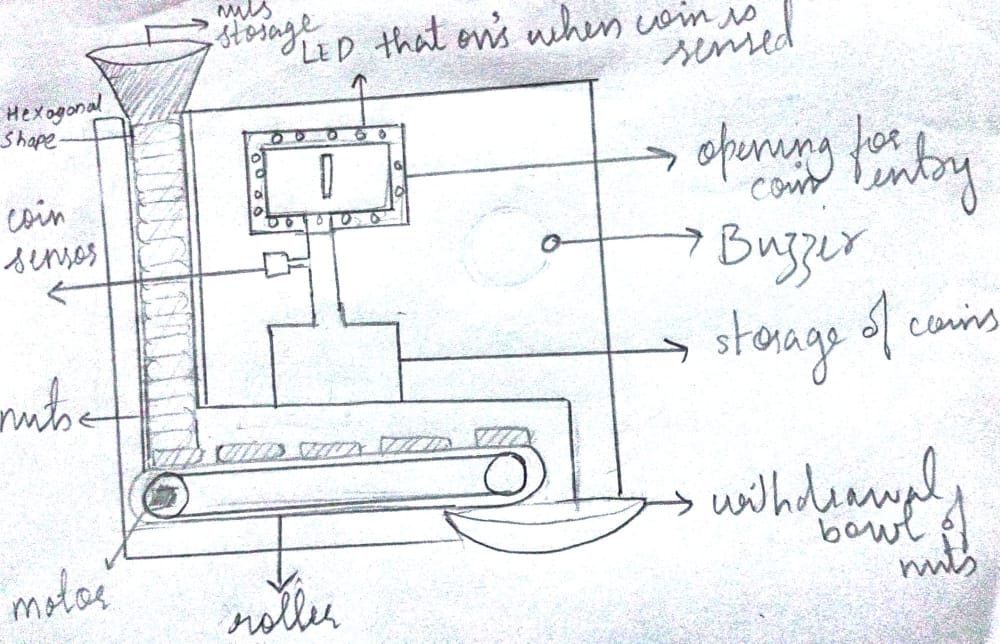 nuts
storage
LED that on's when coin is
sensed
Hexagonal
shape
opening for
coin entry
coin
sensos
Buzzer
storage of coins
nuts
withdrawal
bowl of
nuts
motor
roller